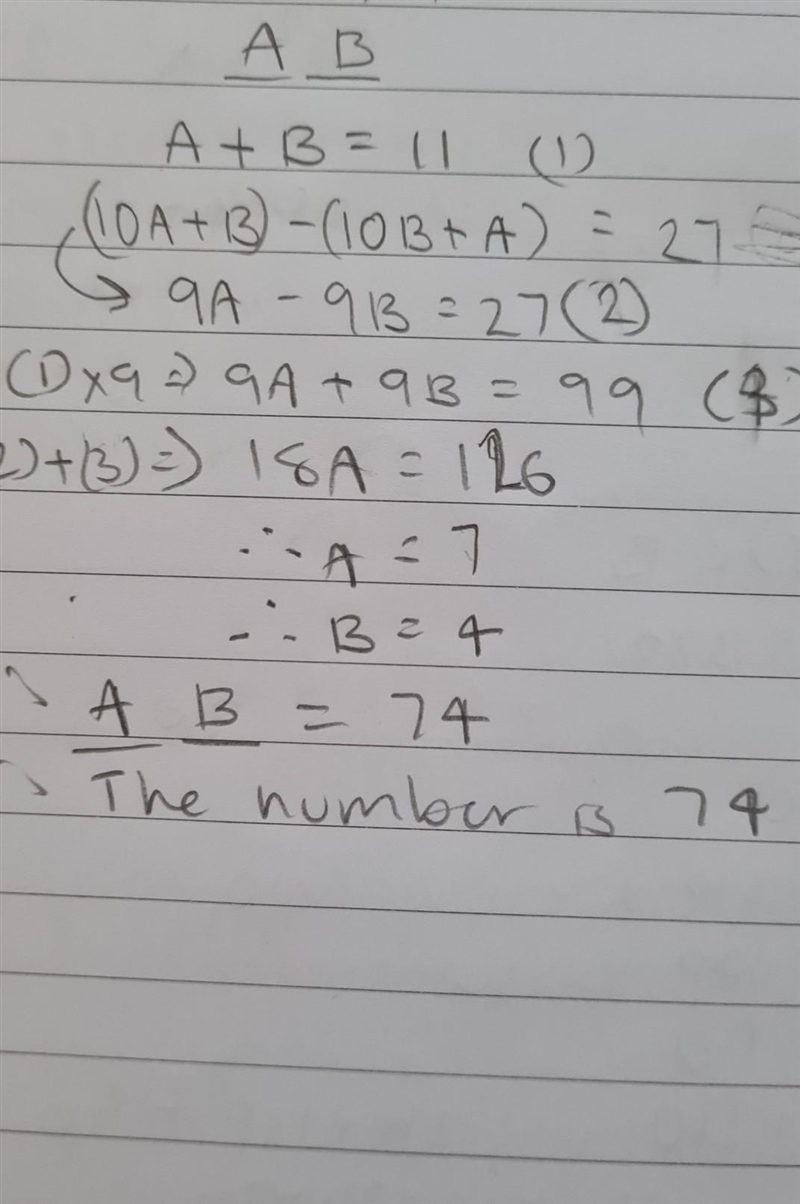 A B
A + B = 11 (1)
(10A + B) - (10B + A) = 27
9A - 9B = 27 (2)
(1) x 9 => 9A + 9B = 99 (3)
2) + (3) => 18A = 126
∴ A = 7
∴ B = 4
A B = 74
The number is 74